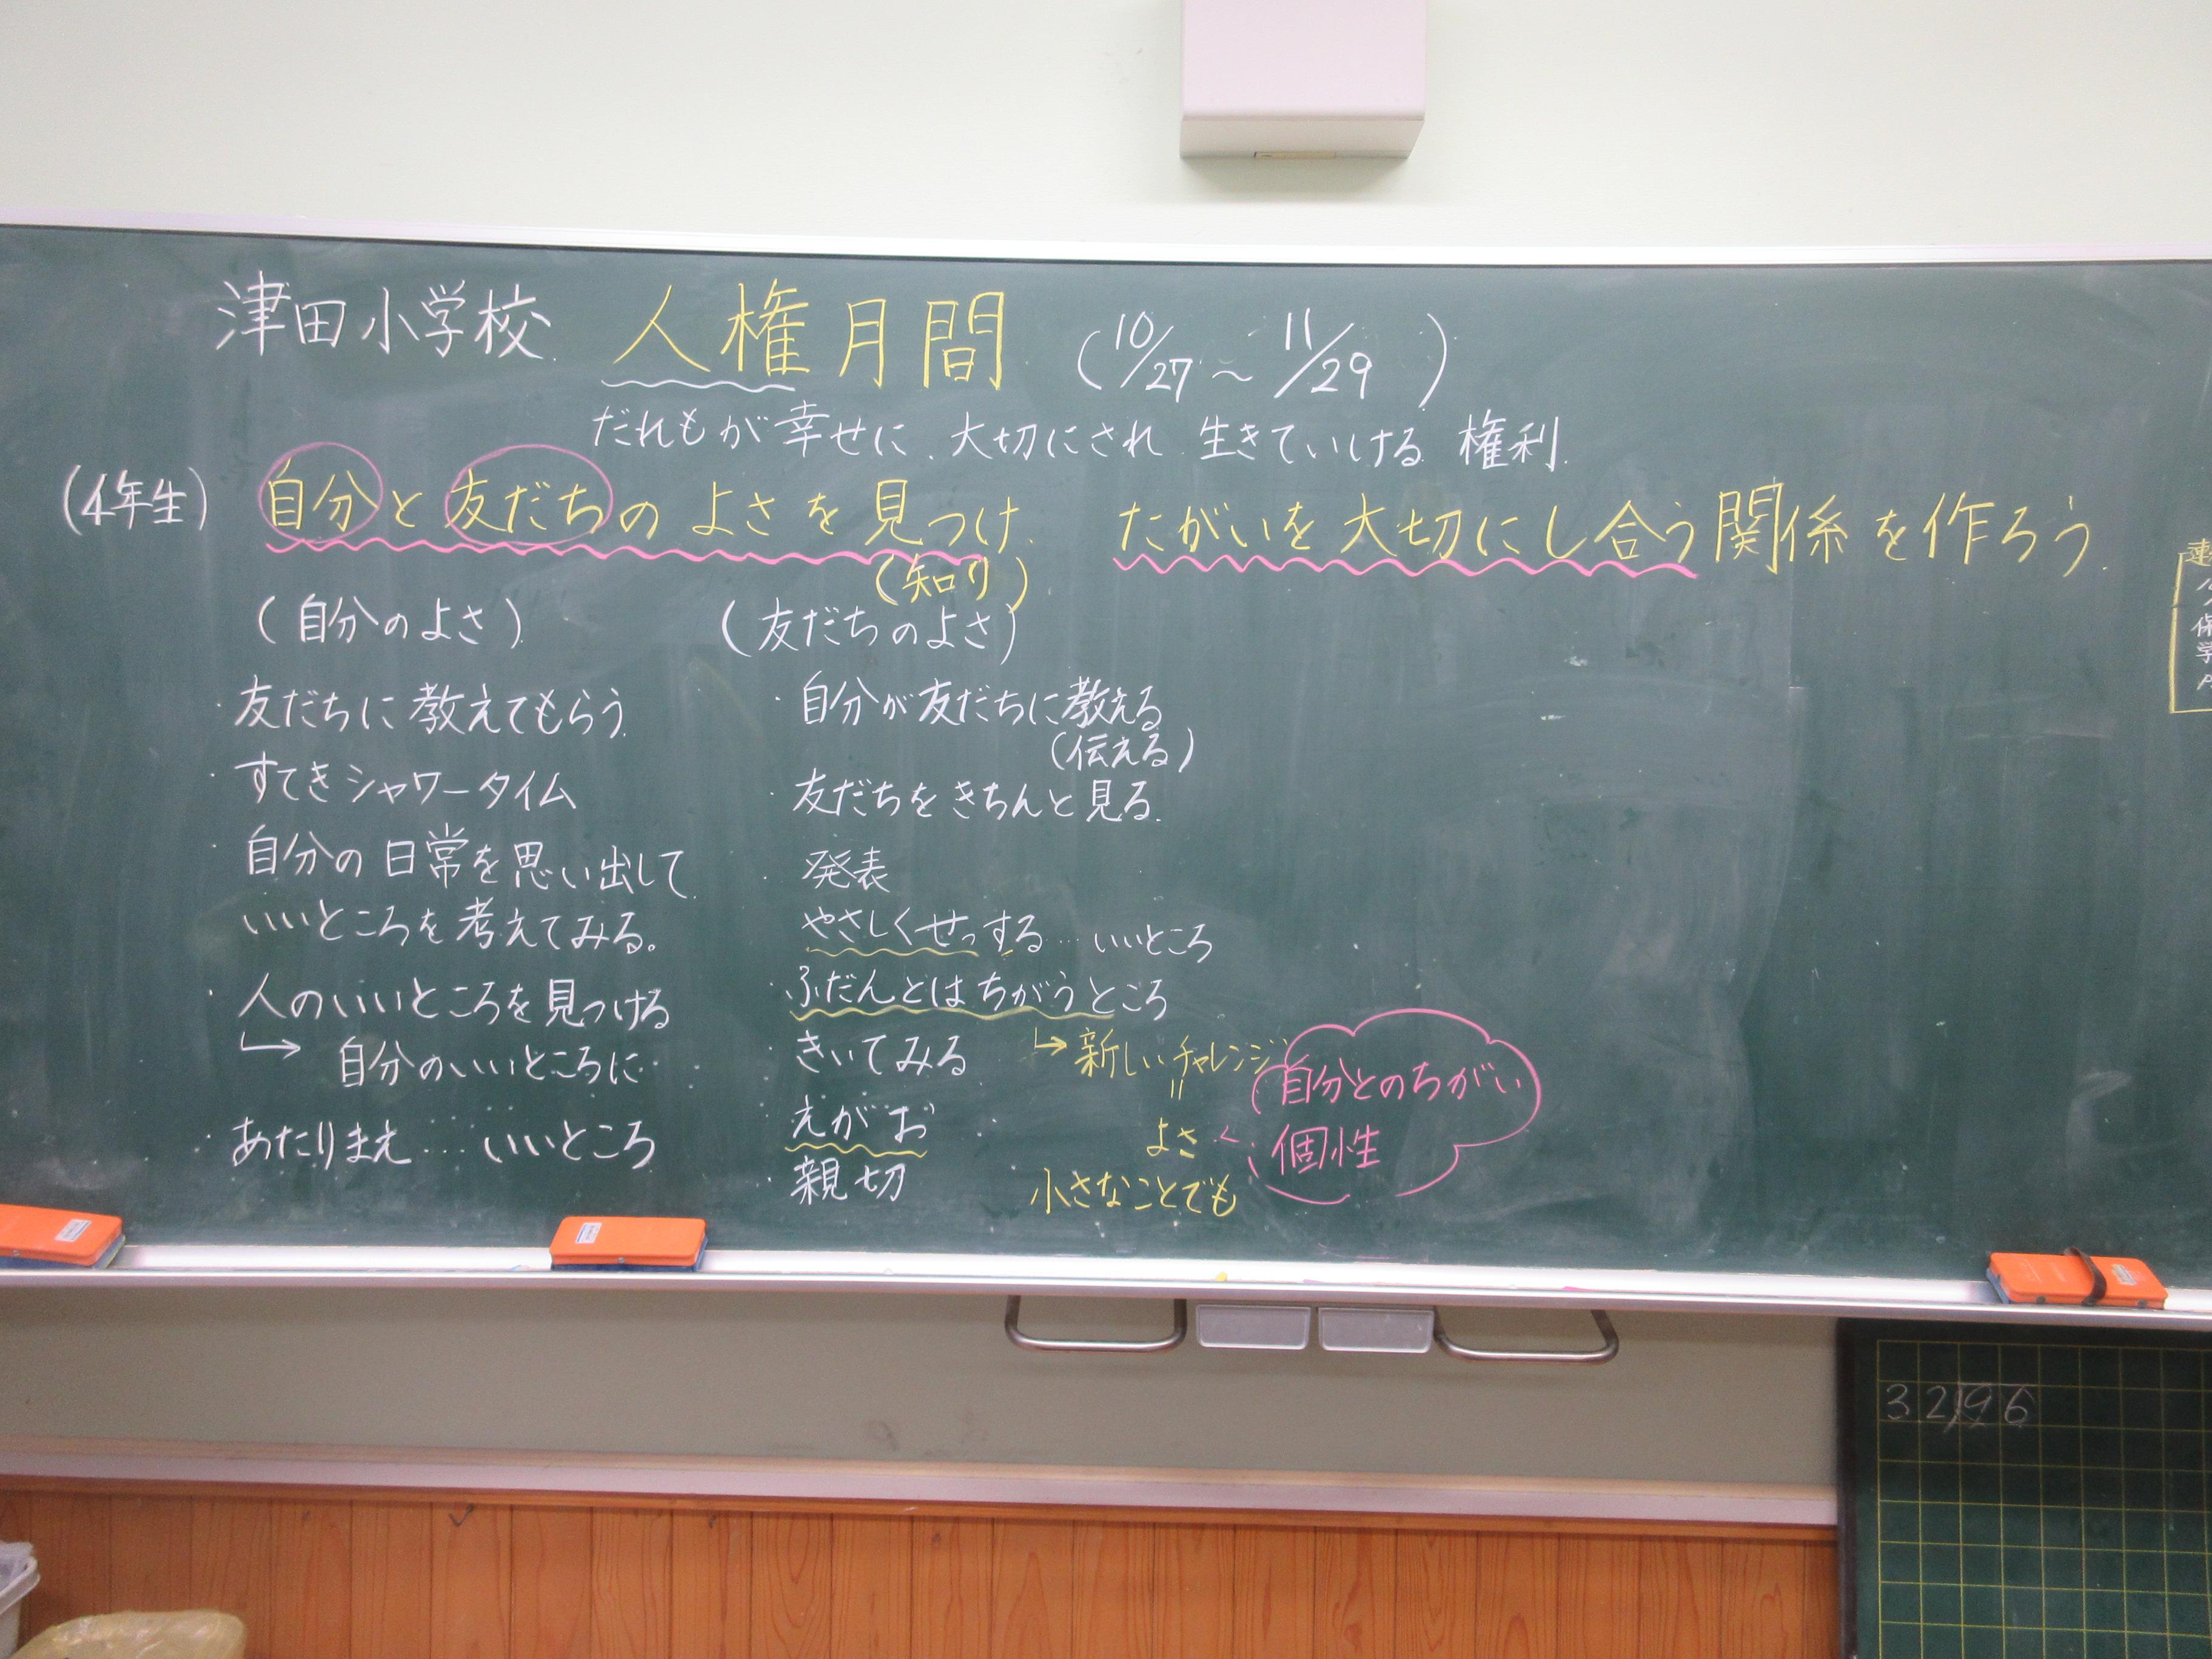 津田小学校 人権月間 (10/27～11/29)
だれもが幸せに、大切にされ 生きていける 権利
(4年生) 自分と友だちのよさを見つけ たがいを大切にし合う関係を作ろう。
(知り)
(自分のよさ)
・友だちに教えてもらう。
・すてきシャワータイム
・自分の日常を思い出して
いいところを考えてみる。
・人のいいところを見つける
↳ 自分のいいところに…
・あたりまえ…いいところ
(友だちのよさ)
・自分が友だちに教える
(伝える)
・友だちをきちんと見る。
・発表
・やさしくせっする…いいところ
・ふだんとはちがうところ
↳新しいチャレンジ
=
よさ
小さなことでも
・きいてみる
・えがお
・親切
自分とのちがい
個性
32)96